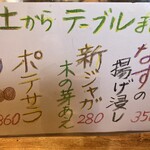 土から テーブルま
なすの
揚げ浸し
35
新ジャガ
木の芽あえ
280
ポテサラ
360